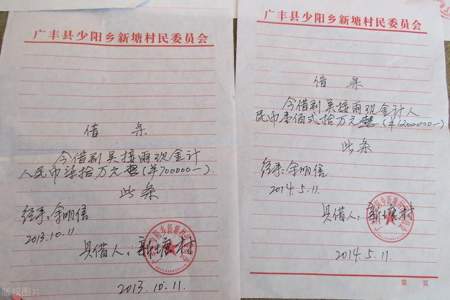 广丰县少阳乡新塘村民委员会
借条
今借到吴接雨现金计
人民币柒拾万元整(¥700000—)
此条
经手:余明信
2013.10.11.
具借人:新塘村
2013.10.11.
广丰县少阳乡新塘村民委员会
借条
今借到吴接雨现金计人
民币壹佰贰拾万元整(¥1200000—)
此条
经手:余明信
2014.5.11.
具借人:新塘村
2014.5.11.